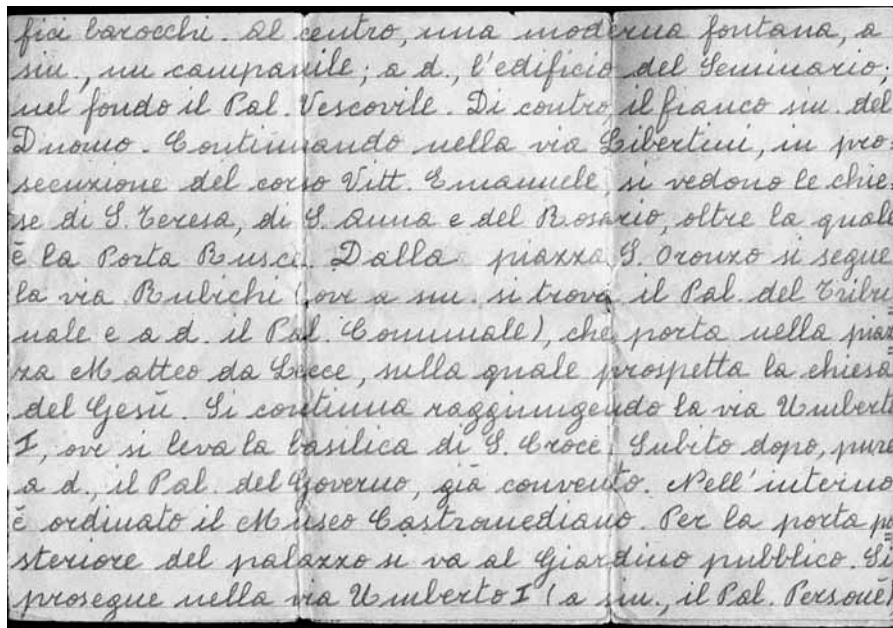 fici barocchi. Al centro, una moderna fontana, a
sin., un campanile; a d., l'edificio del Seminario;
nel fondo il Pal. Vescovile. Di contro, il fianco sin. del
Duomo. Continuando nella via Libertini, in pro=
secuzione del corso Vitt. Emanuele, si vedono le chie=
se di S. Teresa, di S. Anna e del Rosario, oltre la quale
è la Porta Rusce. Dalla piazza S. Oronzo si segue
la via Rubichi (ove a sin. si trova il Pal. del Tribu
nale e a d. il Pal. Comunale), che porta nella piaz
za Matteo da Lecce, sulla quale prospetta la chiesa
del Gesù. Si continua raggiungendo la via Umbert
I, ove si leva la basilica di S. Croce. Subito dopo, pure
a d., il Pal. del Governo, già convento. Nell'interno
è ordinato il Museo Castromediano. Per la porta po
steriore del palazzo si va al Giardino pubblico. Si
prosegue nella via Umberto I (a sin., il Pal. Personè)